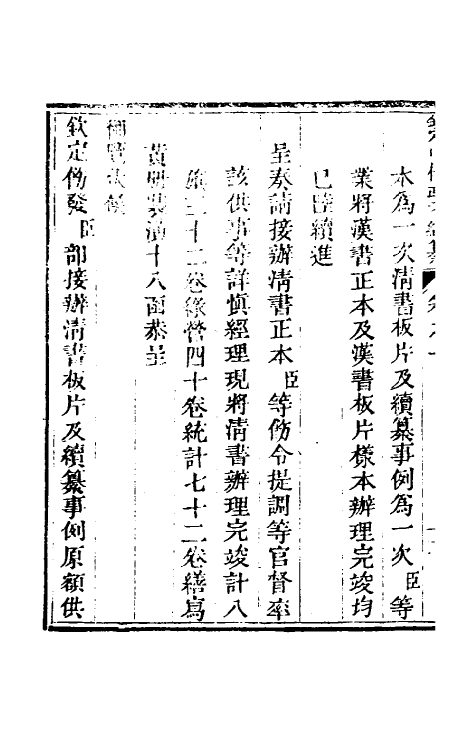 本為一次清書板片及續纂事例為一次臣等
業將漢書正本及漢書板片樣本辦理完竣均
已陸續進
呈奏請接辦清書正本臣等仿令提調等官督率
該供事等詳慎經理現將清書辦理完竣計八
旗三十二卷綠營四十卷統計七十二卷繕寫
黃冊裝潢十八函恭呈
御覽
欽定飭發臣部接辦清書板片及續纂事例原額供